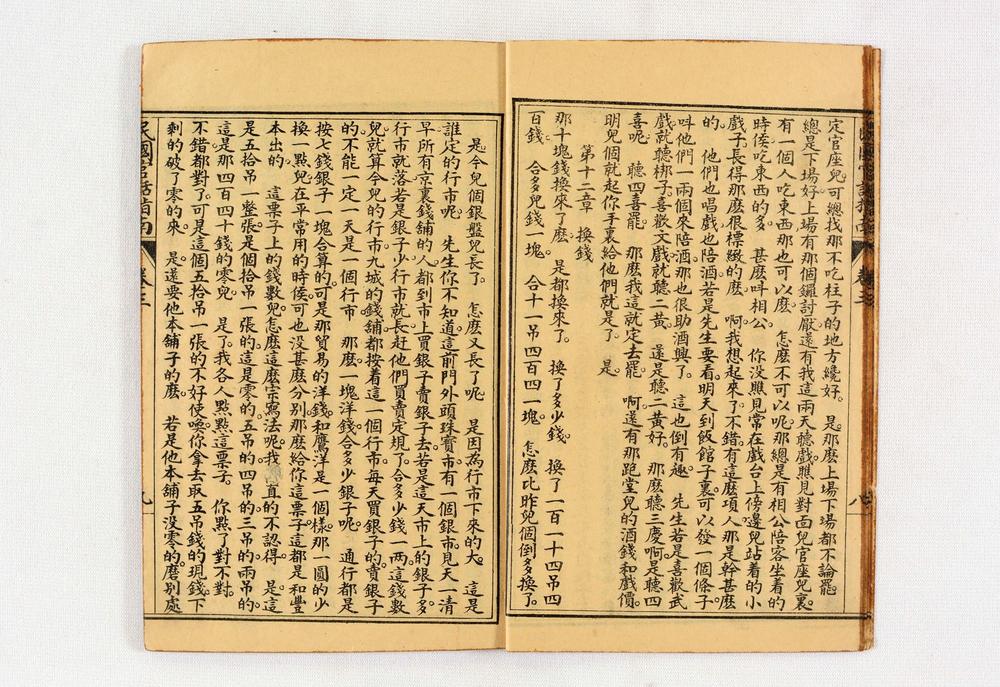 定官座兒可總找那不吃柱子的地方纔好。 是。那麽上場下場都不論罷
總是下場好。上場有那個鑼討厭。還有我這兩天聽戲。瞧見對面兒官座兒裏。
有一個人吃東西。那也可以麽。 怎麽不可以呢。那總是有相公陪客坐着的
時侯吃東西的多。 甚麽呌相公。 你没瞧見常在戲台上傍邊兒站着的小
戲子。長得那麽很標緻的麽。 啊我想起來了。不錯有這麽項人。那是幹甚麽
的。 他們也唱戲也陪酒。若是先生要看。明天到飯館子裏。可以發一個條子
呌他們一兩個來陪酒。那也很助酒興了。 這也倒有趣。 先生若是喜歡武
戲就聽梆子。喜歡文戲就聽二黄。 還是聽二黄好。 那麽聽三慶啊是聽四
喜呢。 聽四喜罷。 那麽我這就定去罷。 啊還有那跑堂兒的酒錢和戲價。
明兒個就起你手裏給他們就是了。 是。
第十二章 換錢
那十塊錢換來了麽。 是都換來了。 換了多少錢。 換了一百一十四吊四
百錢。 合多兒錢一塊。 合十一吊四百四一塊。 怎麽比昨兒個倒多換了。
是今兒個銀盤兒長了。 怎麽又長了呢。 是因為行市下來的大。 這是
誰定的行市呢。 先生你不知道。這前門外頭珠寶市有一個銀市。見天一清
早。所有京裏錢舖的人。都到市上買銀子賣銀子去。若是這天市上的銀子多。
行市就落。若是銀子少。行市就長。赶他們買賣定規了。合多少錢一兩。這錢數
兒就算今兒的行市。九城的錢舖。都按着這一個行市。每天買銀子的賣銀子
的不能一定。一天是一個行市。 那麽一塊洋錢。合多少銀子呢。 通行都是
按七錢銀子一塊合算的。可是那貿易的洋錢和鷹洋是一個樣。那一圓的少
換一點兒。在平常用的時侯。可也没甚麽分别。那麽給你這票子。這都是和豐
本出的。 這票子上的錢數兒怎麽這麽宗寫法呢。我 直的不認得。 是這
是五拾吊一整張。是個拾吊一張的。這是零的。五吊的四吊的三吊的兩吊的
這是那四百四十錢的零兒。 是了。我各人點點這票子。 你點了對不對。
不錯都對了。可是這個五拾吊一張的不好使喚。你拿去取五吊錢的現錢。下
剩的破了零的來。 是。還要他本舖子的麽。 若是他本舖子没零的。磨别處
民國官話指南 卷三 九